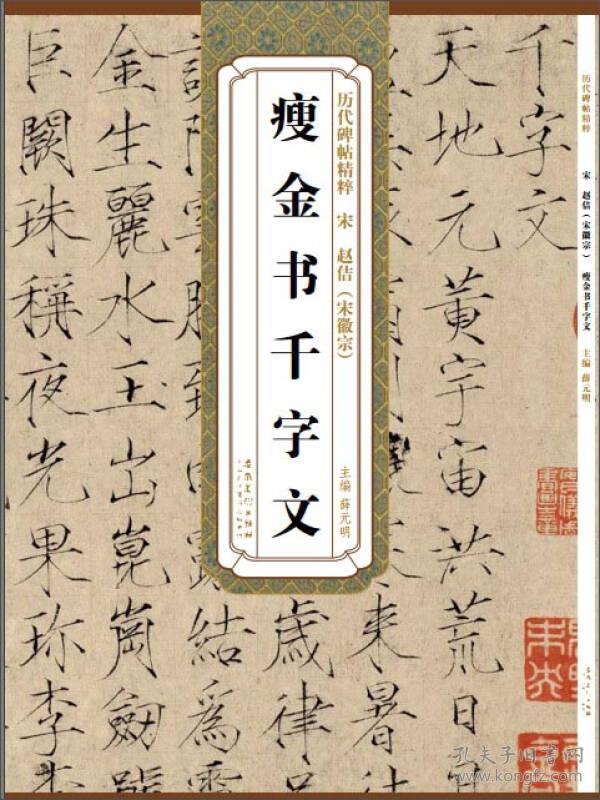 历代碑帖精粹 宋 赵佶（宋徽宗） 瘦金书千字文 主编 薛元明
千字文
天地元黄宇宙洪荒日
来暑
歲律
結爲
金生麗水玉出崑崗劍
巨闕珠稱夜光果珍李
历代碑帖精粹 宋 赵佶（宋徽宗）
主编 薛元明
瘦金书千字文
孔夫子旧书网
www.kongfz.com